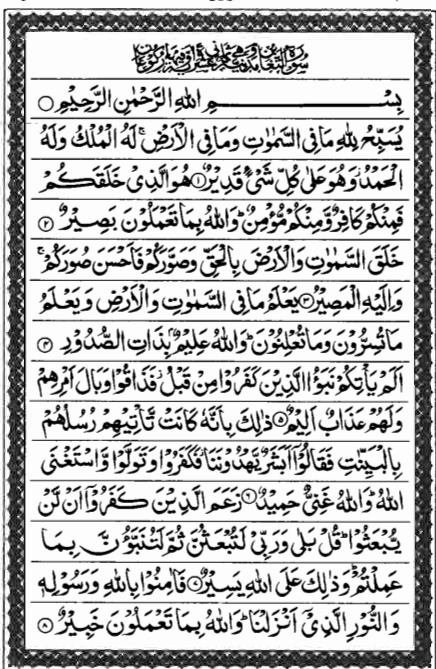 سورة التغابن مدنية وهي ثماني عشرة آية وفيها ركوعان
بِسْمِ اللهِ الرَّحْمٰنِ الرَّحِيْمِ ○
يُسَبِّحُ لِلّٰهِ مَا فِى السَّمٰوٰتِ وَمَا فِى الْاَرْضِ ۚ لَهُ الْمُلْكُ وَلَهُ
الْحَمْدُ ؗ وَهُوَ عَلٰى كُلِّ شَىْءٍ قَدِيْرٌ ① هُوَ الَّذِىْ خَلَقَكُمْ
فَمِنْكُمْ كَافِرٌ وَّمِنْكُمْ مُّؤْمِنٌ ؕ وَاللهُ بِمَا تَعْمَلُوْنَ بَصِيْرٌ ②
خَلَقَ السَّمٰوٰتِ وَالْاَرْضَ بِالْحَقِّ وَصَوَّرَكُمْ فَاَحْسَنَ صُوَرَكُمْ ۚ
وَاِلَيْهِ الْمَصِيْرُ ③ يَعْلَمُ مَا فِى السَّمٰوٰتِ وَالْاَرْضِ وَيَعْلَمُ
مَا تُسِرُّوْنَ وَمَا تُعْلِنُوْنَ ؕ وَاللهُ عَلِيْمٌۢ بِذَاتِ الصُّدُوْرِ ④
اَلَمْ يَاْتِكُمْ نَبَؤُا الَّذِيْنَ كَفَرُوْا مِنْ قَبْلُ ؗ فَذَاقُوْا وَبَالَ اَمْرِهِمْ
وَلَهُمْ عَذَابٌ اَلِيْمٌ ⑤ ذٰلِكَ بِاَنَّهٗ كَانَتْ تَّاْتِيْهِمْ رُسُلُهُمْ
بِالْبَيِّنٰتِ فَقَالُوْۤا اَبَشَرٌ يَّهْدُوْنَنَا ؗ فَكَفَرُوْا وَتَوَلَّوْا وَّاسْتَغْنَى
اللهُ ؕ وَاللهُ غَنِىٌّ حَمِيْدٌ ⑥ زَعَمَ الَّذِيْنَ كَفَرُوْۤا اَنْ لَّنْ
يُّبْعَثُوْا ؕ قُلْ بَلٰى وَرَبِّىْ لَتُبْعَثُنَّ ثُمَّ لَتُنَبَّؤُنَّ بِمَا
عَمِلْتُمْ ؕ وَذٰلِكَ عَلَى اللهِ يَسِيْرٌ ⑦ فَاٰمِنُوْا بِاللهِ وَرَسُوْلِهٖ
وَالنُّوْرِ الَّذِىْۤ اَنْزَلْنَا ؕ وَاللهُ بِمَا تَعْمَلُوْنَ خَبِيْرٌ ⑧